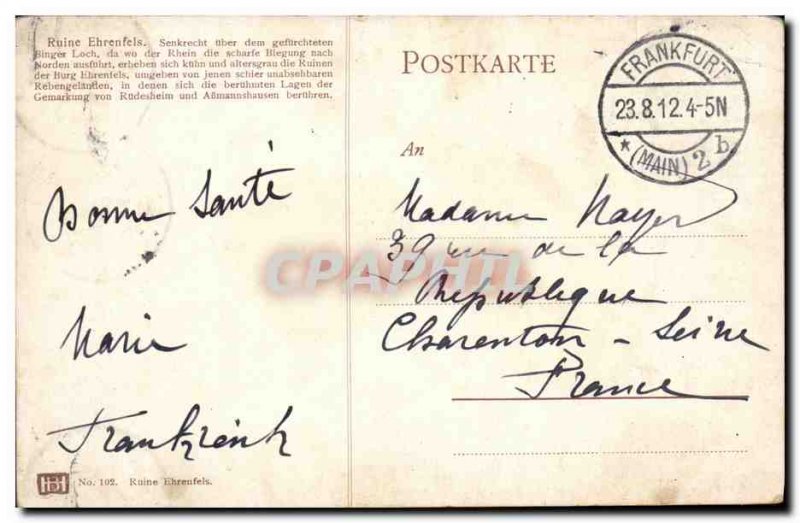 Ruine Ehrenfels. Senkrecht über dem gefürchteten
Binger Loch, da wo der Rhein die scharfe Biegung nach
Norden ausführt, erheben sich kühn und altersgrau die Ruinen
der Burg Ehrenfels, umgeben von jenen schier unabsehbaren
Rebengeländen, in denen sich die berühmten Lagen der
Gemarkung von Rüdesheim und Aßmannshausen berühren.
POSTKARTE
FRANKFURT
23.8.12.4-5N
* (MAIN) 2 b.
An
Bonne Santé
Marie
Madame
39 rue de la
République
Charenton - Seine
France
CPAPHIL
HB
No. 102. Ruine Ehrenfels.